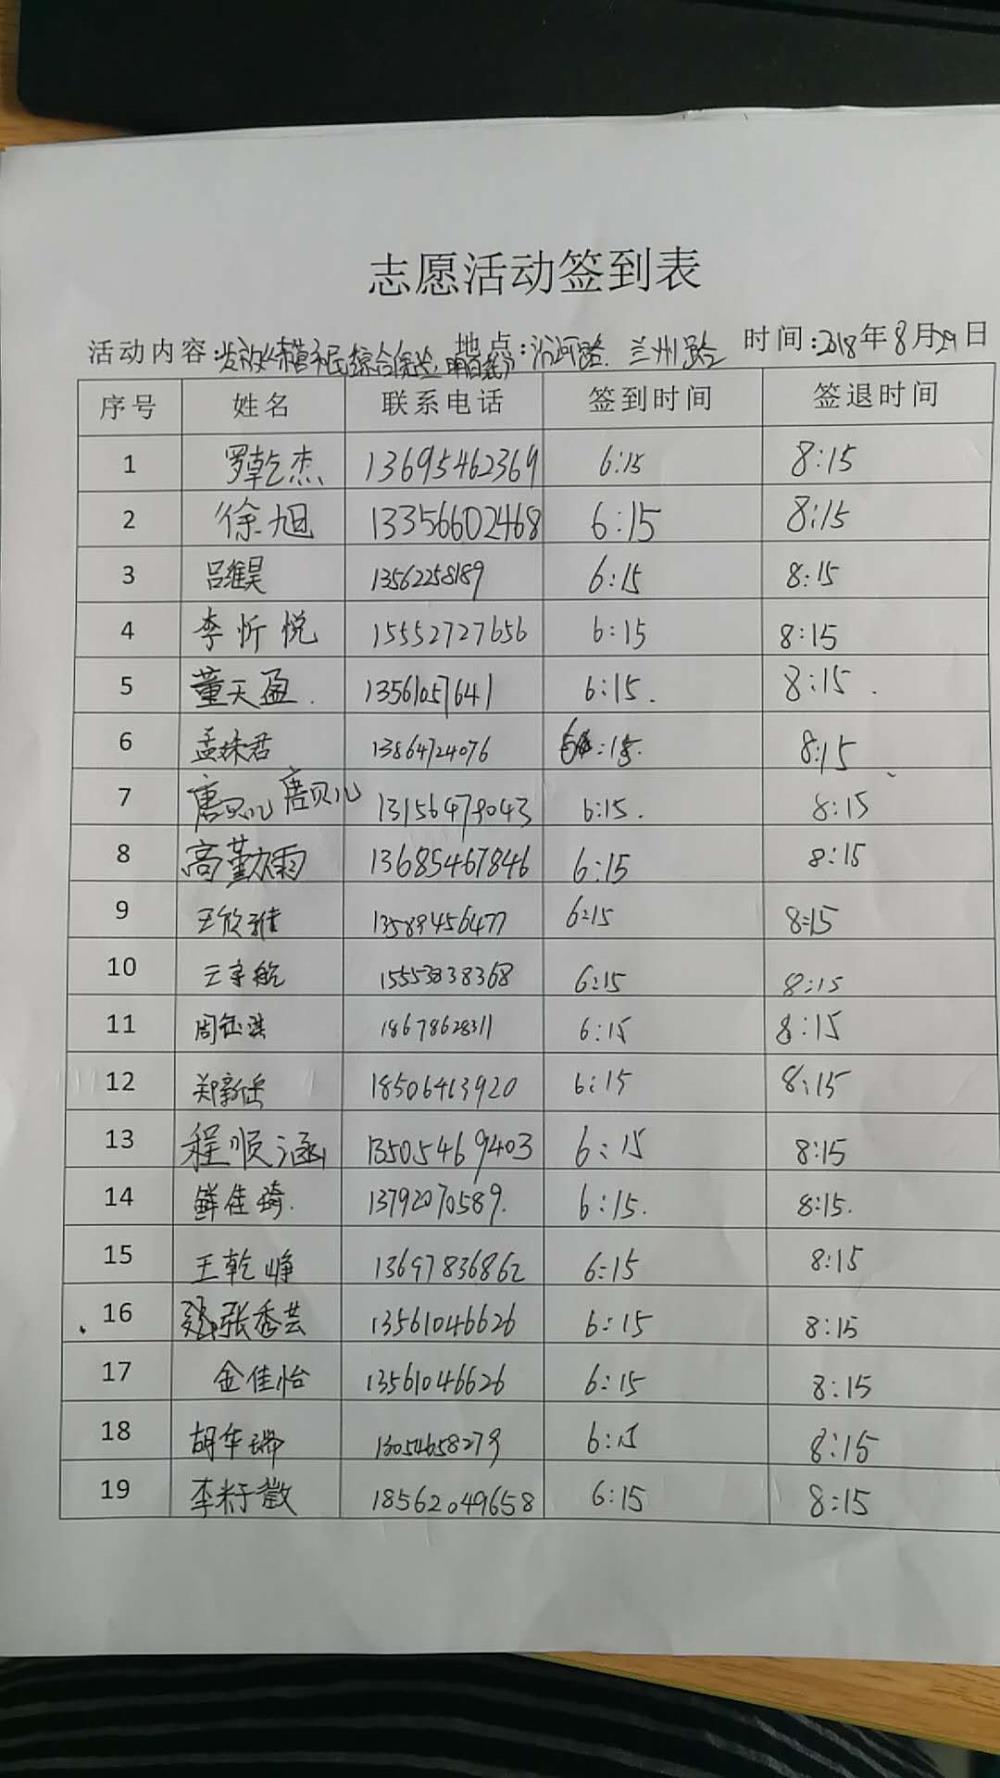 志愿活动签到表
活动内容:发放 市民综合保险 明白纸 地点:沂河路、兰州路 时间:2018年8月29日
序号 姓名 联系电话 签到时间 签退时间
1 罗乾杰 13695462369 6:15 8:15
2 徐旭 13356602468 6:15 8:15
3 吕维昊 13562258189 6:15 8:15
4 李忻悦 15552727656 6:15 8:15
5 董天盈. 13561057641 6:15. 8:15.
6 孟姝君 13864724076 6:15. 8:15
7 唐贝儿 唐贝儿 13156479043 6:15. 8:15
8 高董雨 13685467846 6:15 8:15
9 王欣雅 13589456477 6:15 8:15
10 王宇航 15553838368 6:15 8:15
11 周钰淇 18678628311 6:15 8:15
12 郑新岳 18506413920 6:15 8:15
13 程顺涵 13505469403 6:15 8:15
14 鲜佳琦. 13792070589. 6:15. 8:15.
15 王乾峥 13697836862 6:15 8:15
16 张秀芸 13561046626 6:15 8:15
17 金佳怡 13561046626 6:15 8:15
18 胡华瑞 13054658279 6:15 8:15
19 李籽徵 18562049658 6:15 8:15